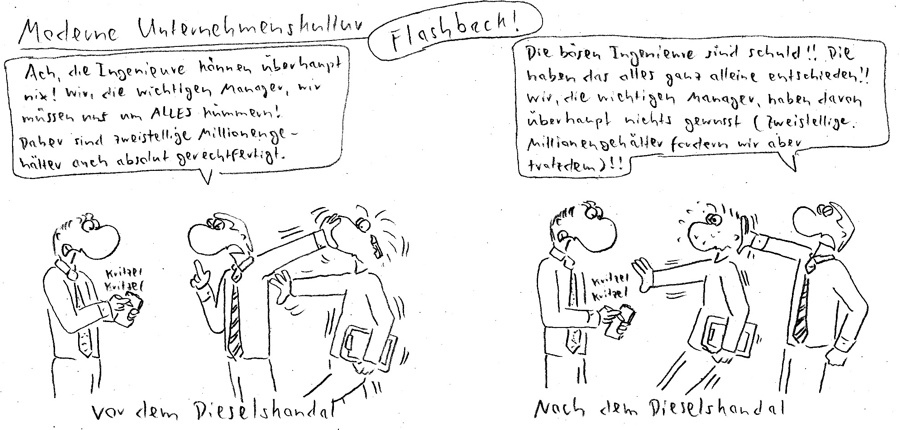 Moderne Unternehmenskultur
Flashback!
Ach, die Ingenieure können überhaupt
nix! Wir, die wichtigen Manager, wir
müssen uns um ALLES kümmern!
Daher sind zweistellige Millionenge-
hälter auch absolut gerechtfertigt.
Kritzel
Kritzel
Vor dem Dieselskandal
Die bösen Ingenieure sind schuld!! Die
haben das alles ganz alleine entschieden!!
Wir, die wichtigen Manager, haben davon
überhaupt nichts gewusst (zweistellige
Millionengehälter fordern wir aber
trotzdem)!!
Kritzel
Kritzel
Nach dem Dieselskandal